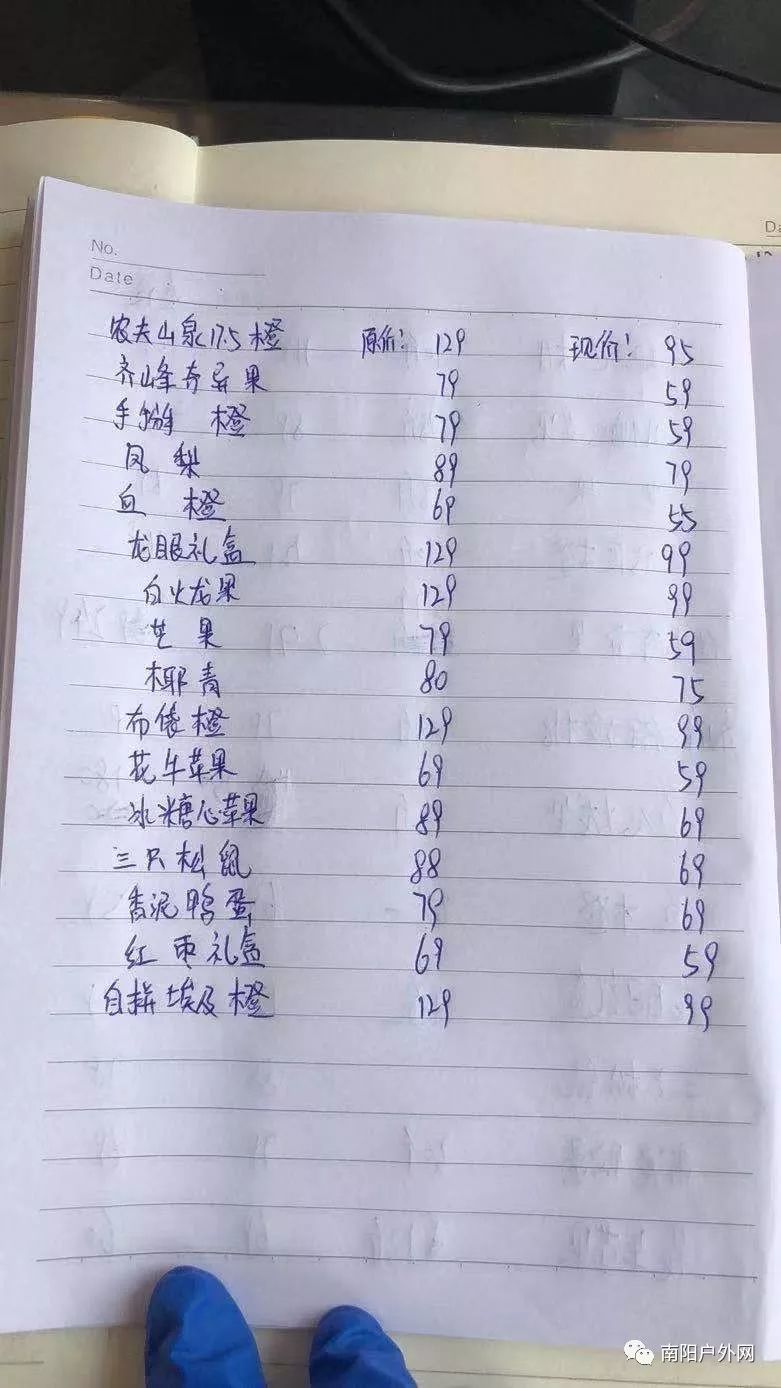 No.
Date
农夫山泉17.5橙 原价: 129 现价: 95
齐峰奇异果 79 59
手掰 橙 79 59
凤 梨 89 79
血 橙 69 55
龙眼礼盒 129 99
白火龙果 129 99
芒 果 79 59
椰青 80 75
布俵橙 129 99
花牛苹果 69 59
冰糖心苹果 89 69
三只松鼠 88 69
香泥鸭蛋 79 69
红枣礼盒 69 59
自拼埃及橙 129 99
南阳户外网